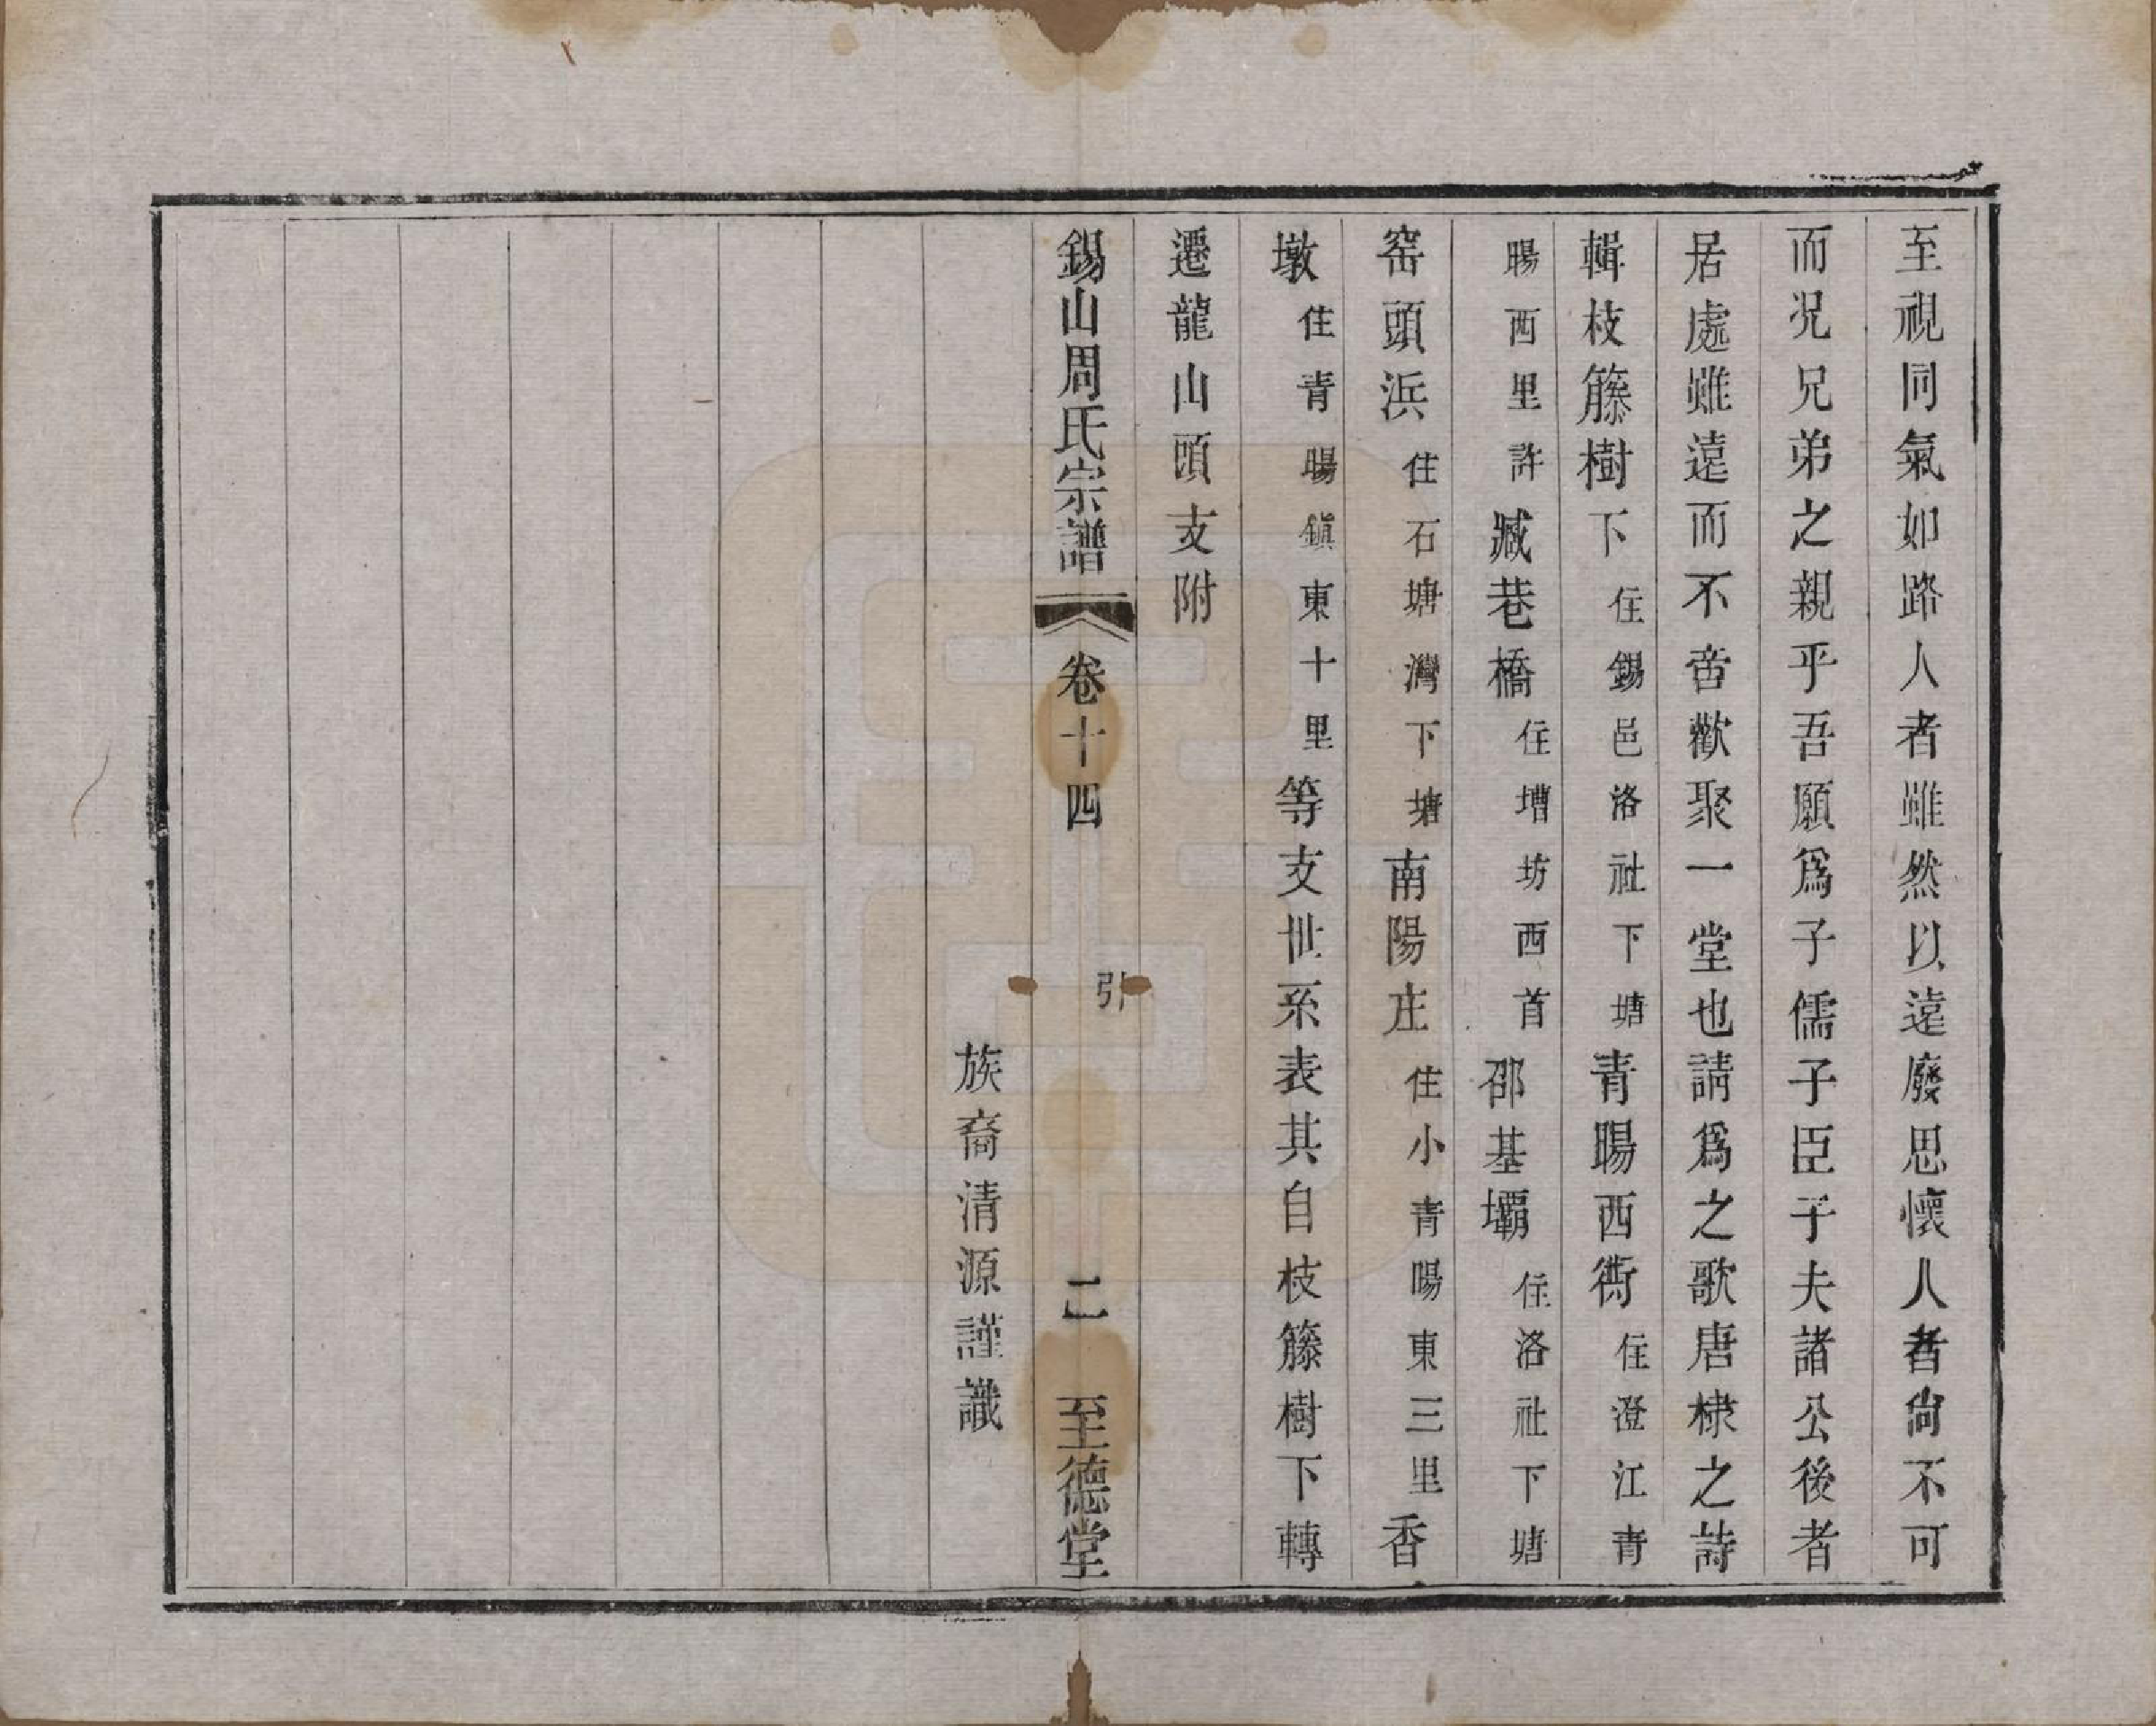 至視同氣如路人者雖然以遠廢思懷人者尙不可
而況兄弟之親乎吾願爲子儒子臣子夫諸公後者
居處雖遠而不啻歡聚一堂也請爲之歌唐棣之詩
輯枝籐樹下住錫邑洛社下塘青暘西街住澄江青
暘西里許臧巷橋住壋坊西首邵基壩住洛社下塘
窑頭浜住石塘灣下塘南陽庄住小青暘東三里香
墩住青暘鎭東十里等支世系表其自枝籐樹下轉
遷龍山頭支附
錫山周氏宗譜 卷十四 引 二 至德堂
族裔清源謹識